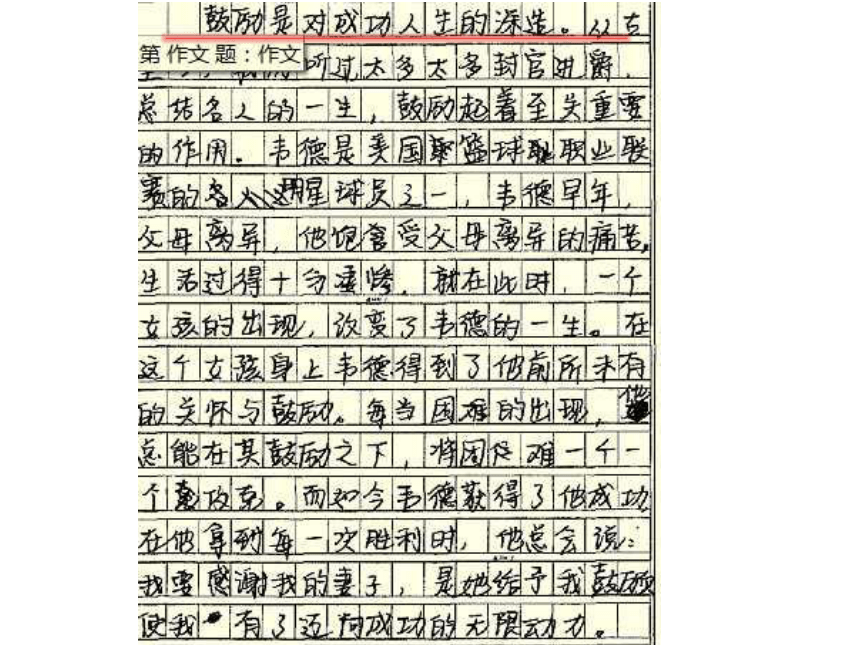 鼓励是对成功人生的深造。从古
第 作文 题：作文
听过太多太多封官进爵，
总结名人的一生，鼓励起着至关重要
的作用。韦德是美国篮球职业联
赛的明星球员之一，韦德早年，
父母离异，他饱含受父母离异的痛苦，
生活过得十分凄惨，就在此时，一个
女孩的出现，改变了韦德的一生。在
这个女孩身上韦德得到了他前所未有
的关怀与鼓励。每当困难的出现，他
总能在其鼓励之下，将困难一个一
个攻克。而如今韦德获得了他成功
在他拿到每一次胜利时，他总会说：
我要感谢我的妻子，是她给予我鼓励
使我有了迈向成功的无限动力。